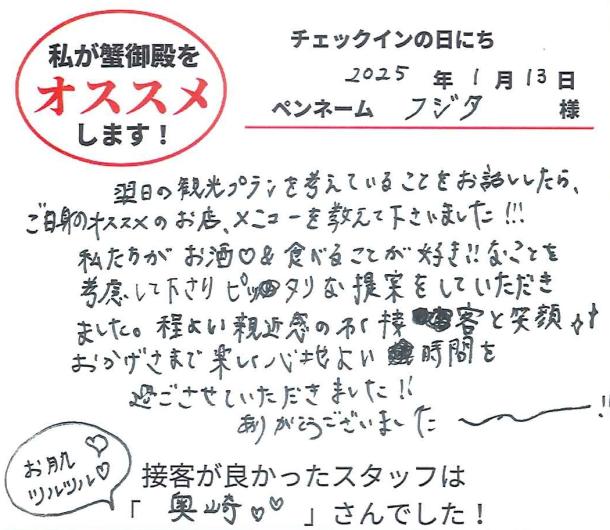 私が蟹御殿を
オススメ
します!
チェックインの日にち
2025 年 1 月 13 日
ペンネーム フジタ 様
翌日の観光プランを考えていることをお話ししたら、
ご自身のオススメのお店、メニューを教えて下さいました!!!
私たちが お酒♡&食べることが好き!!なことを
考慮して下さり ピッタリな提案をしていただき
ました。程よい親近感の 接客と笑顔
おかげさまで楽しく心地よい時間を
過ごさせていただきました!!
ありがとうございました〜!!
お肌♡
ツルツル♡
接客が良かったスタッフは
「 奥崎♡♡ 」さんでした!